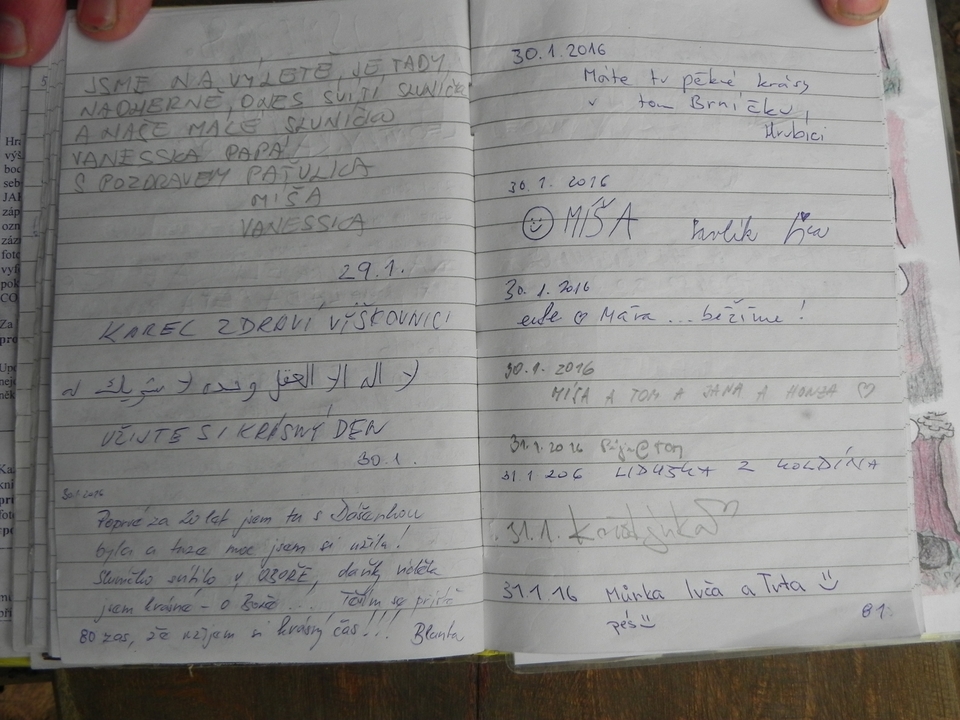 JSME NA VÝLETĚ, JE TADY
NÁDHERNĚ, DNES SVÍTÍ SLUNÍČKO
A NAŠE MALÉ SLUNÍČKO
VANESSKA PAPÁ!
S POZDRAVEM PAŤULKA
MÍŠA
VANESSKA
29.1.
KAREL ZDRAVÍ VÝŠKOVNICI
لا اله الا العقل وحده لا شريك له
UŽIJTE SI KRÁSNÝ DEN
30.1.
30.1.2016
Poprvé za 20 let jsem tu s Dášenkou
byla a tuze moc jsem si užila!
Sluníčko svítilo v OBOŘE, daňky viděla
jsem krásné - ó Bože ... Těším se příště
80 zas, že užijem si krásný čas!!! Blanka
30.1.2016
Máte tu pěkné krásy
v tom Brníčku,
Hrubíci
30.1.2016
MÍŠA
30.1.2016
Mára ... běžíme!
30.1.2016
MÍŠA A TOM A JANA A HONZA
31.1.2016 TOM
31.1.206 LIDUŠKA Z KOLDÍNA
31.1. Karolýnka
31.1.16 Můrka Ivča a Tvta
pes
81.